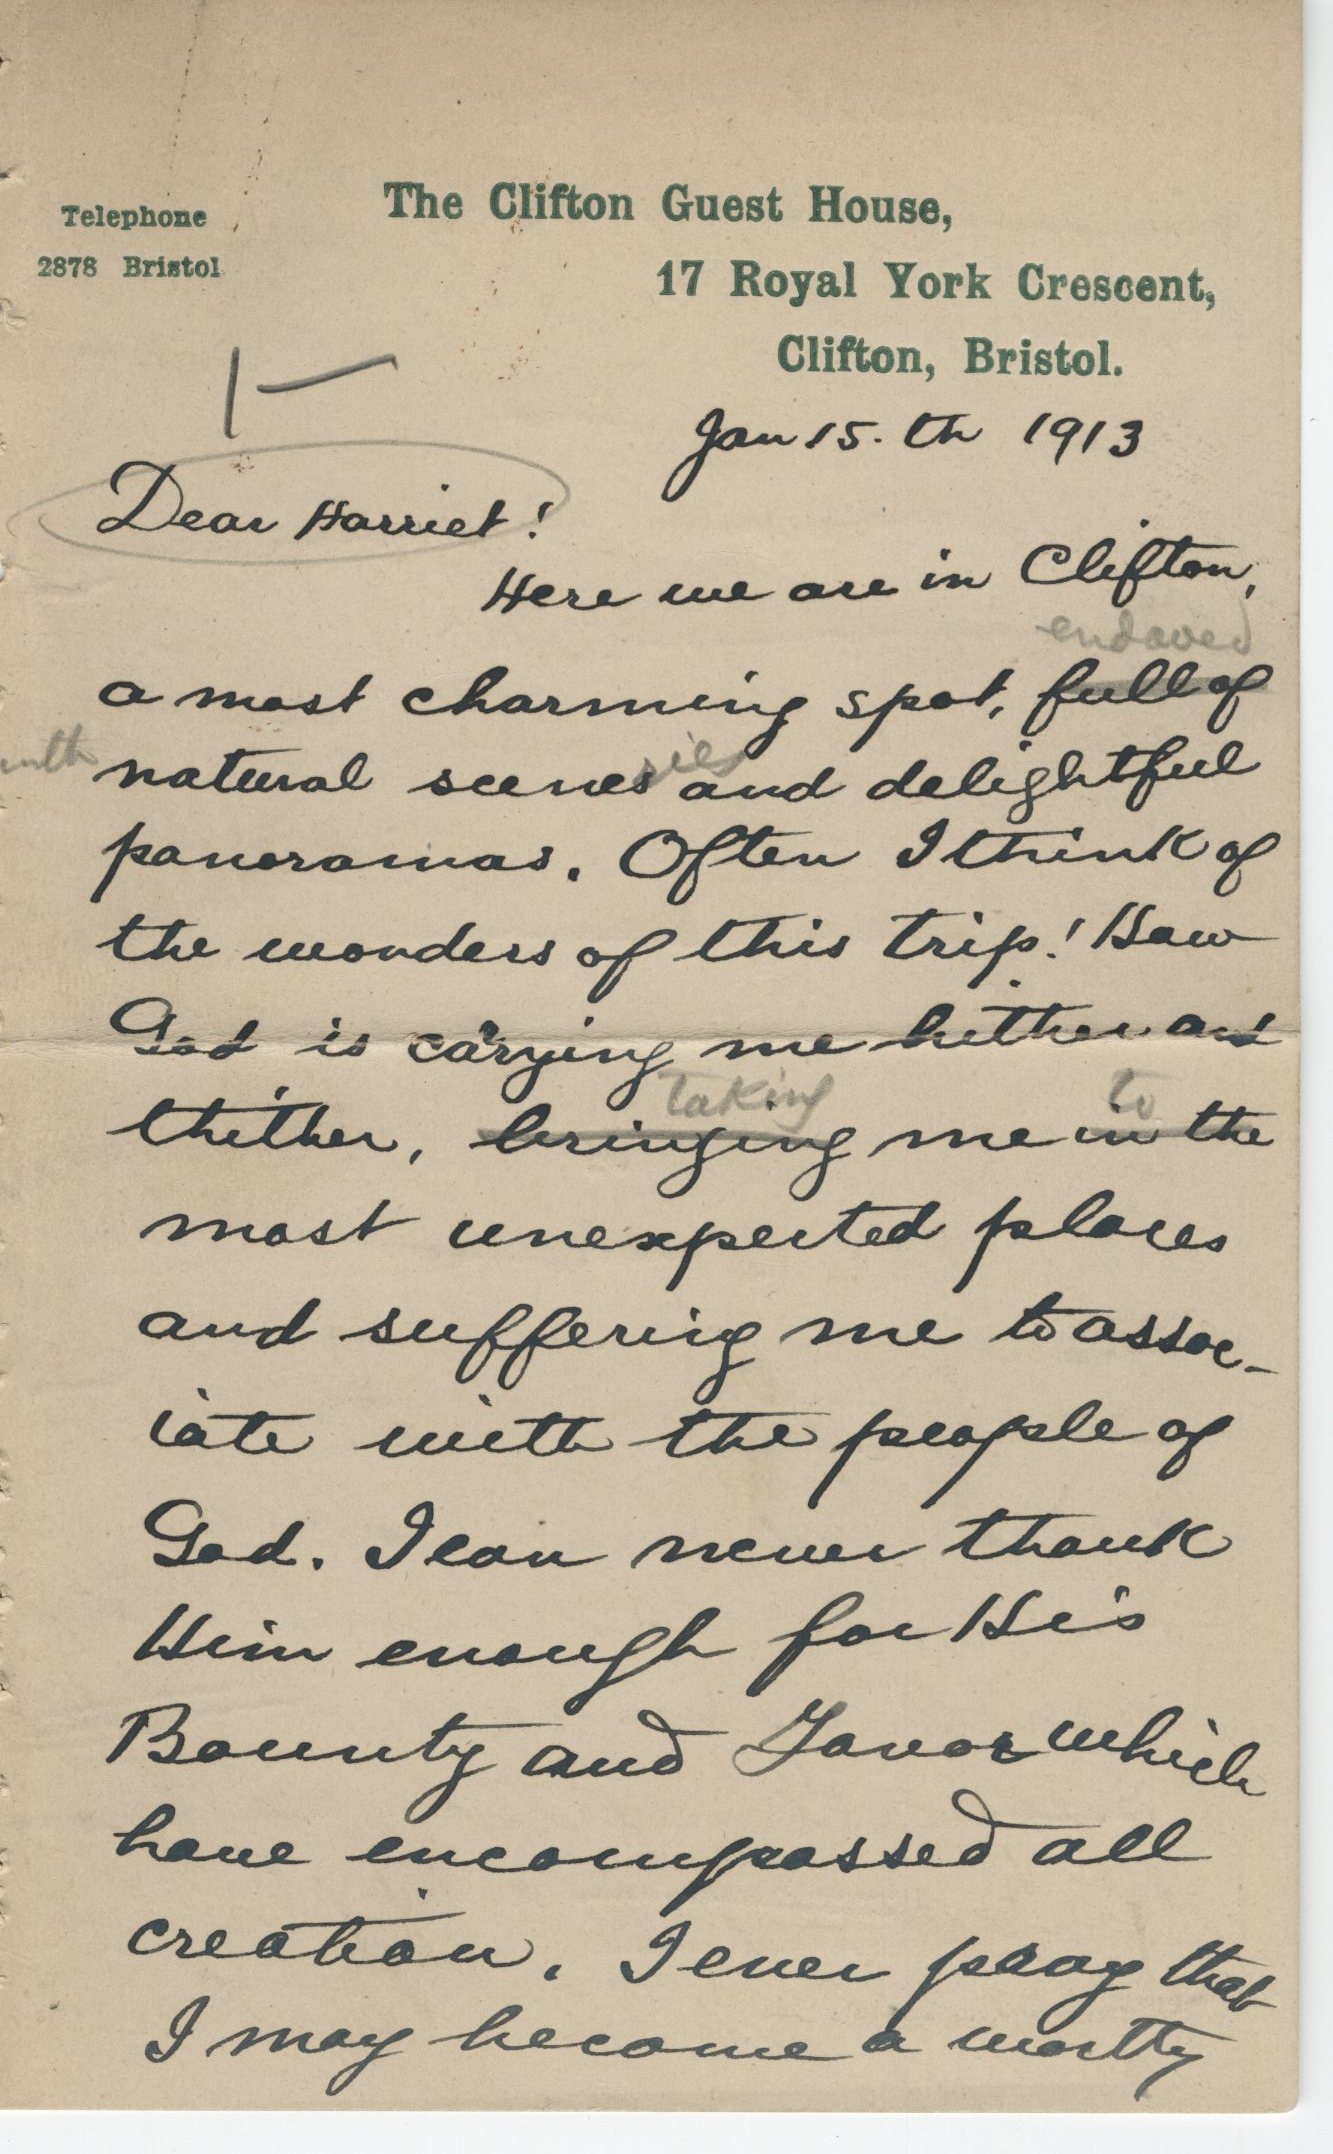 Telephone
2878 Bristol
The Clifton Guest House,
17 Royal York Crescent,
Clifton, Bristol.
1-
Jan 15. th 1913
Dear Harriet!
Here we are in Clifton,
endowed
a most charming spot, full of
with natural scenes ries and delightful
panoramas. Often I think of
the wonders of this trip! How
God is carying me hither and
taking to
thither, bringing me in the
most unexpected places
and suffering me to assoc-
iate with the people of
God. I can never thank
Him enough for His
Bounty and Favor which
have encompassed all
creation. I ever pray that
I may become a worthy